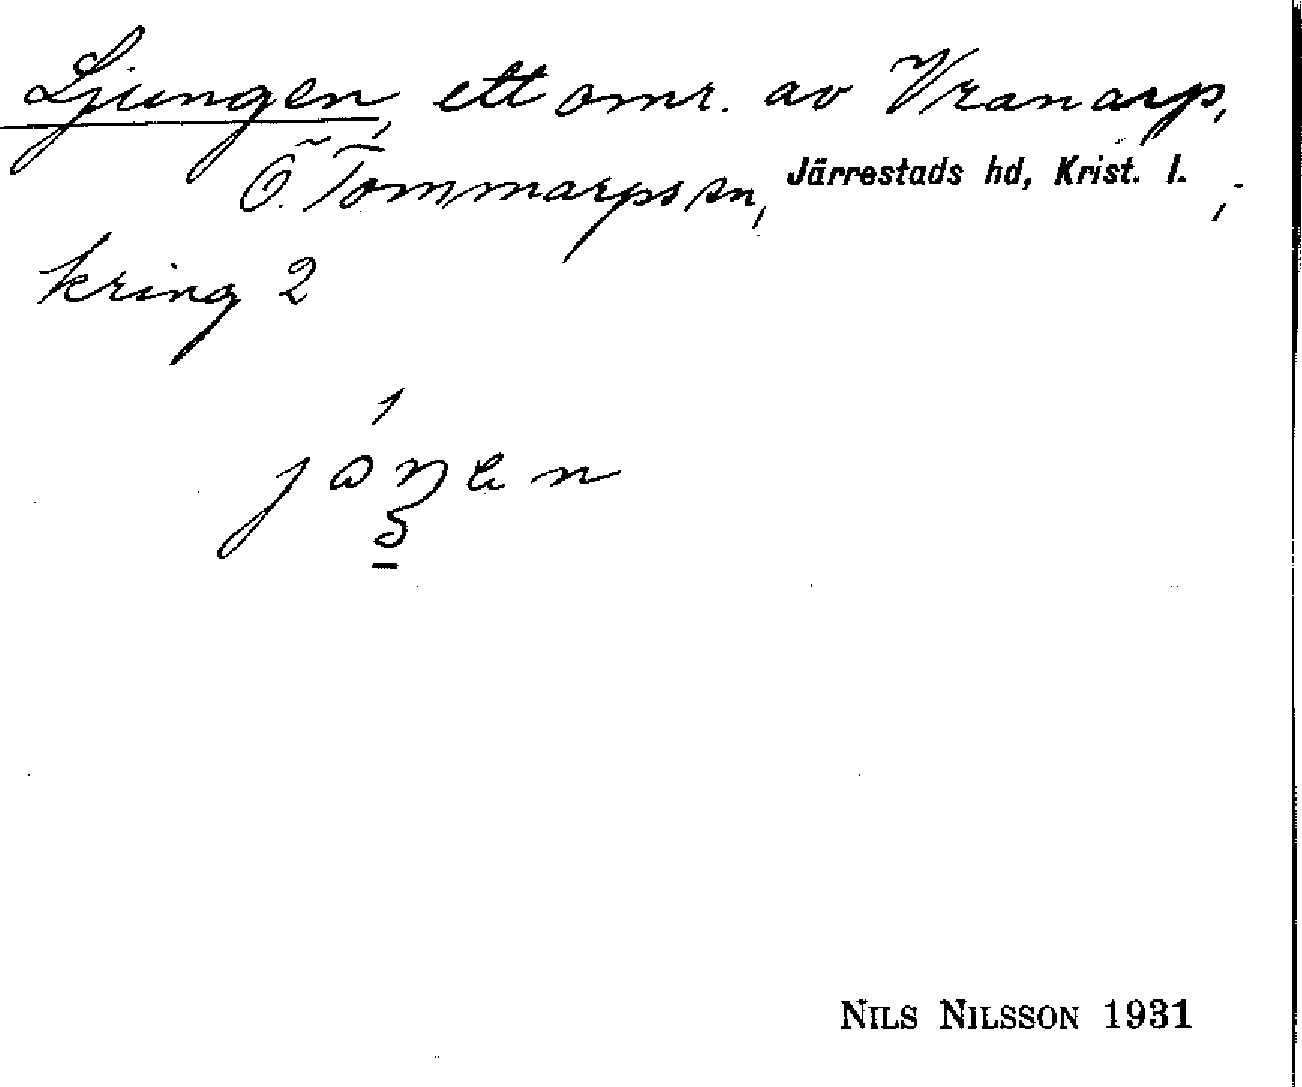 Ljungen, ett omr. av Vranarp,
Ö. Tommarps sn, Järrestads hd, Krist. l. ;
kring 2
NILS NILSSON 1931